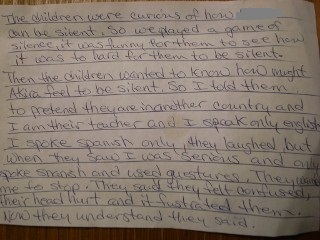 The children were curious of how
can be silent. So we played a game of
silence, it was funny for them to see how
it was to hard for them to be silent.
Then the children wanted to know how might
Akira feel to be silent. So I told them
to pretend they are in another country and
I am their teacher and I speak only english
I spoke spanish only, they laughed but
when they saw I was serious and only
spoke spanish and used guestures. They wanted
me to stop. They said they felt confused,
their head hurt and it fustrated them.
Now they understand they said.